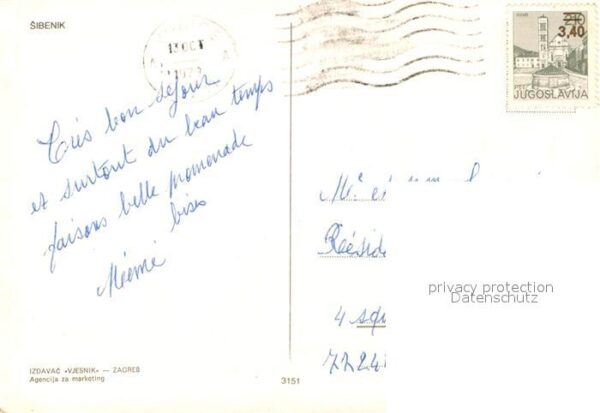 ŠIBENIK
13 OCT
2,10
3,40
JUGOSLAVIJA
Très bon séjour
et surtout du beau temps
faisons belle promenade
bises
Mémé
Résid
4 squ
7724
privacy protection
Datenschutz
IZDAVAČ »VJESNIK« — ZAGREB
Agencija za marketing
3151